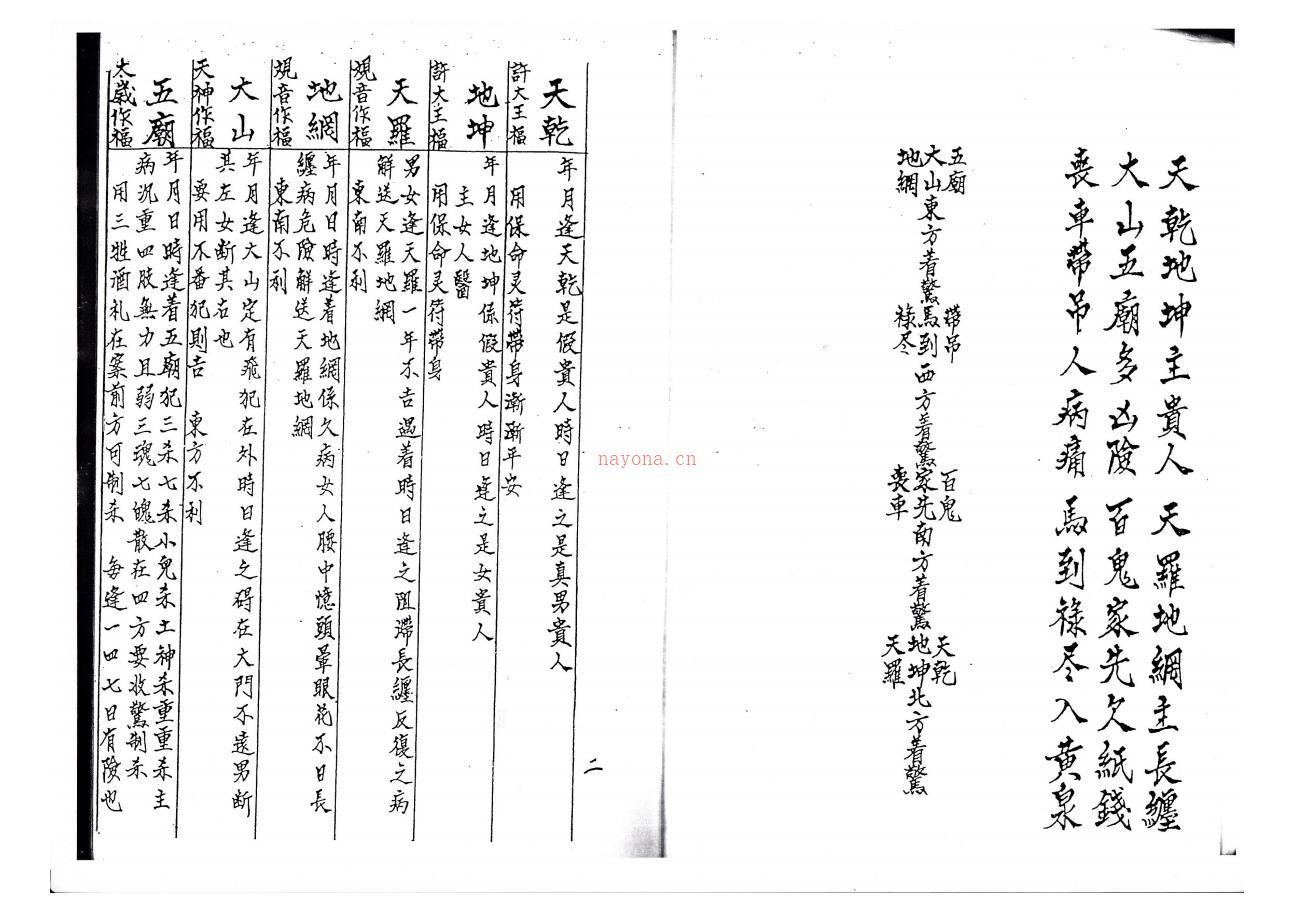 天乾地坤主貴人 天羅地網主長纏
大山五廟多凶險 百鬼家先欠紙錢
喪車帶吊人病痛 馬到祿尽入黄泉
五廟
大山
地網
東方着驚
帶吊
馬到
祿尽
西方着驚
百鬼
家先
喪車
南方着驚
天乾
地坤
天羅
北方着驚
二
天乾
許大王福
年月逢天乾是假貴人時日逢之是真男貴人
用保命灵符帶身漸漸平安
地坤
許大王福
年月逢地坤係假貴人時日逢之是女貴人
主女人醫
用保命灵符帶身
天羅
観音作福
男女逢天羅一年不吉遇着時日逢之阻滯長纏反復之病
解送天羅地網
東南不利
地網
観音作福
年月日時逢着地網係久病女人腰中憶頭暈眼花不日長
纏病危險解送天羅地網
東南不利
大山
天神作福
年月逢大山定有飛犯在外時日逢之碍在大門不遠男断
其左女断其右也
要用不番犯則吉 東方不利
五廟
太歲作福
年月日時逢着五廟犯三杀七杀小兒杀土神杀重重杀主
病沉重四肢無力且弱三魂七魄散在四方要收驚制杀
用三牲酒礼在案前方可制杀 每逢一四七日有險也
nayona.cn